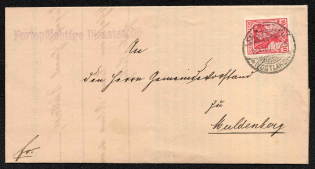 Portopflichtige Dienstsache
An
den Herrn Gemeindevorstand
zu
Muldenberg
fr.